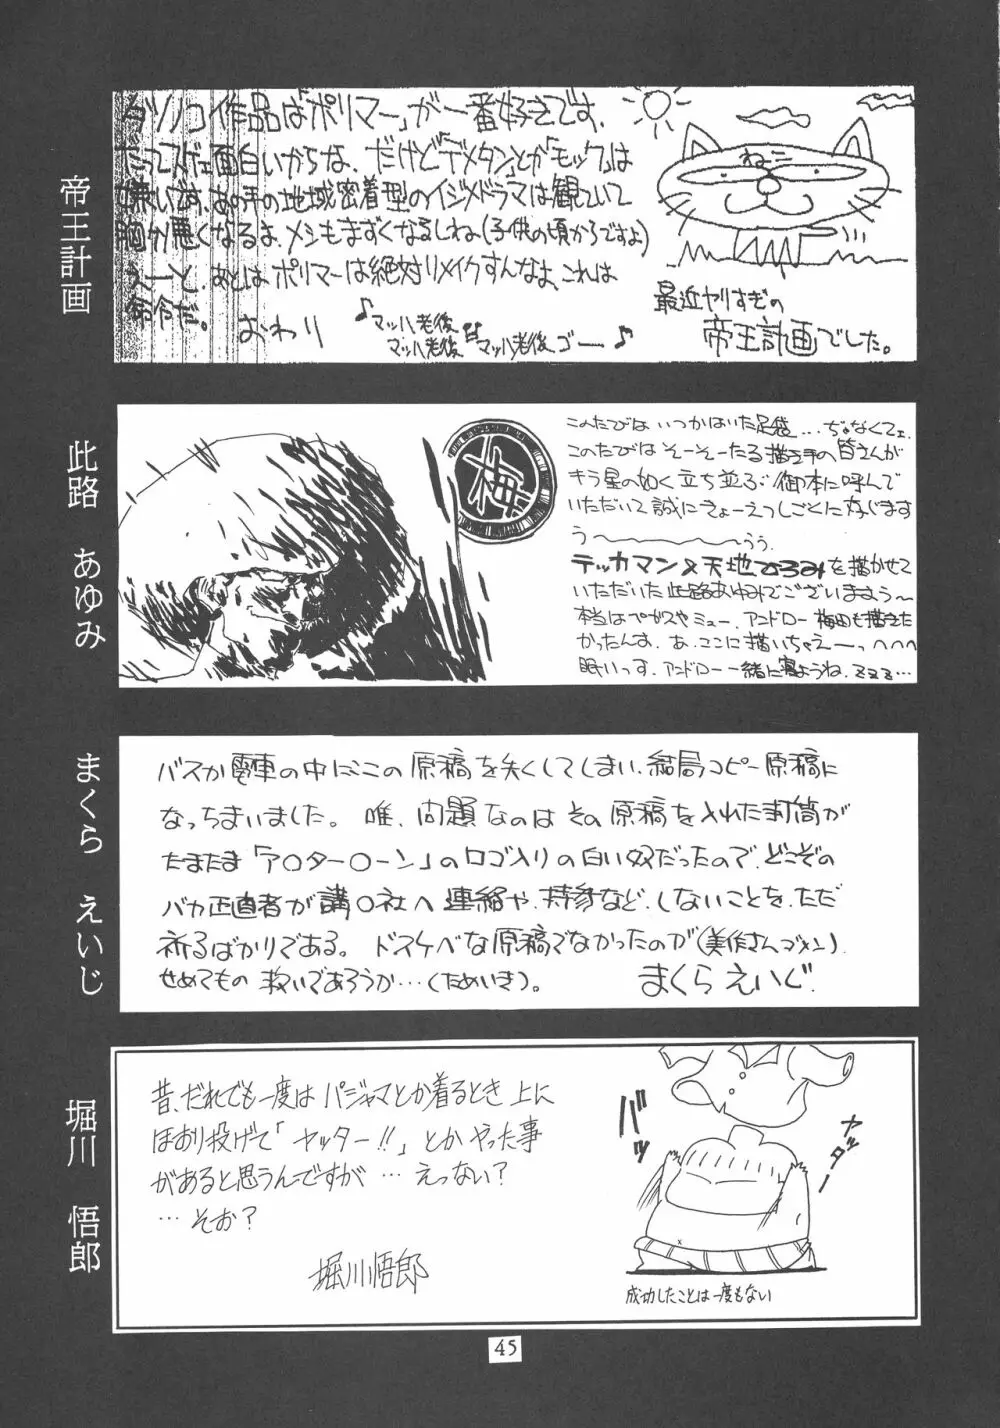 帝王計画
タツノコ作品は「ポリマー」が一番好きです。
だってスゲェ面白いからな、だけど「デメタン」とか「モック」は
嫌いです。あの手の地域密着型のイジメドラマは観ていて
胸が悪くなるよ、メシもまずくなるしね(子供の頃からですよ)
えーと、あとは、ポリマーは絶対リメイクすんなよ、これは
命令だ。
おわり
♪マッハ老後
マッハ老後
マッハ老後 ゴー♪
ねこ
最近ヤリすぎの
帝王計画でした。
此路 あゆみ
梅
このたびは いつかはいた足袋…ぢゃなくてェ、
このたびは そーそーたる描き手の皆さんが
キラ星の如く立ち並ぶ御本に呼んで
いただいて誠にきょーえつしごくに存じます
う〜〜〜〜うぅ
テッカマン×天地ひろみを描かせて
いただいた此路あゆみでございますぅ〜
本当はペガスやミュー、アンドロー梅田も描きた
かったんす。あ、ここに描いちゃえーっヘヘヘ
眠いっす。アンドロー一緒に寝ようね、ZZZ…
まくら えいじ
バスか電車の中にこの原稿を失くしてしまい、結局コピー原稿に
なっちまいました。唯、問題なのはその原稿を入れた封筒が
たまたま「ア○ター○ーン」のロゴ入りの白い奴だったので、どこぞの
バカ正直者が講○社へ連絡や、持参など、しないことを、ただ
祈るばかりである。ドスケベな原稿でなかったのが(美作さんゴメン)
せめてもの救いであろうか…(ためいき)。
まくらえいじ.
堀川 悟郎
昔、だれでも一度はパジャマとか着るとき上に
ほおり投げて「ヤッター!!」とかやった事
があると思うんですが…えっない?
…そお?
堀川悟郎
バッ
ヤッター
x
成功したことは一度もない
45